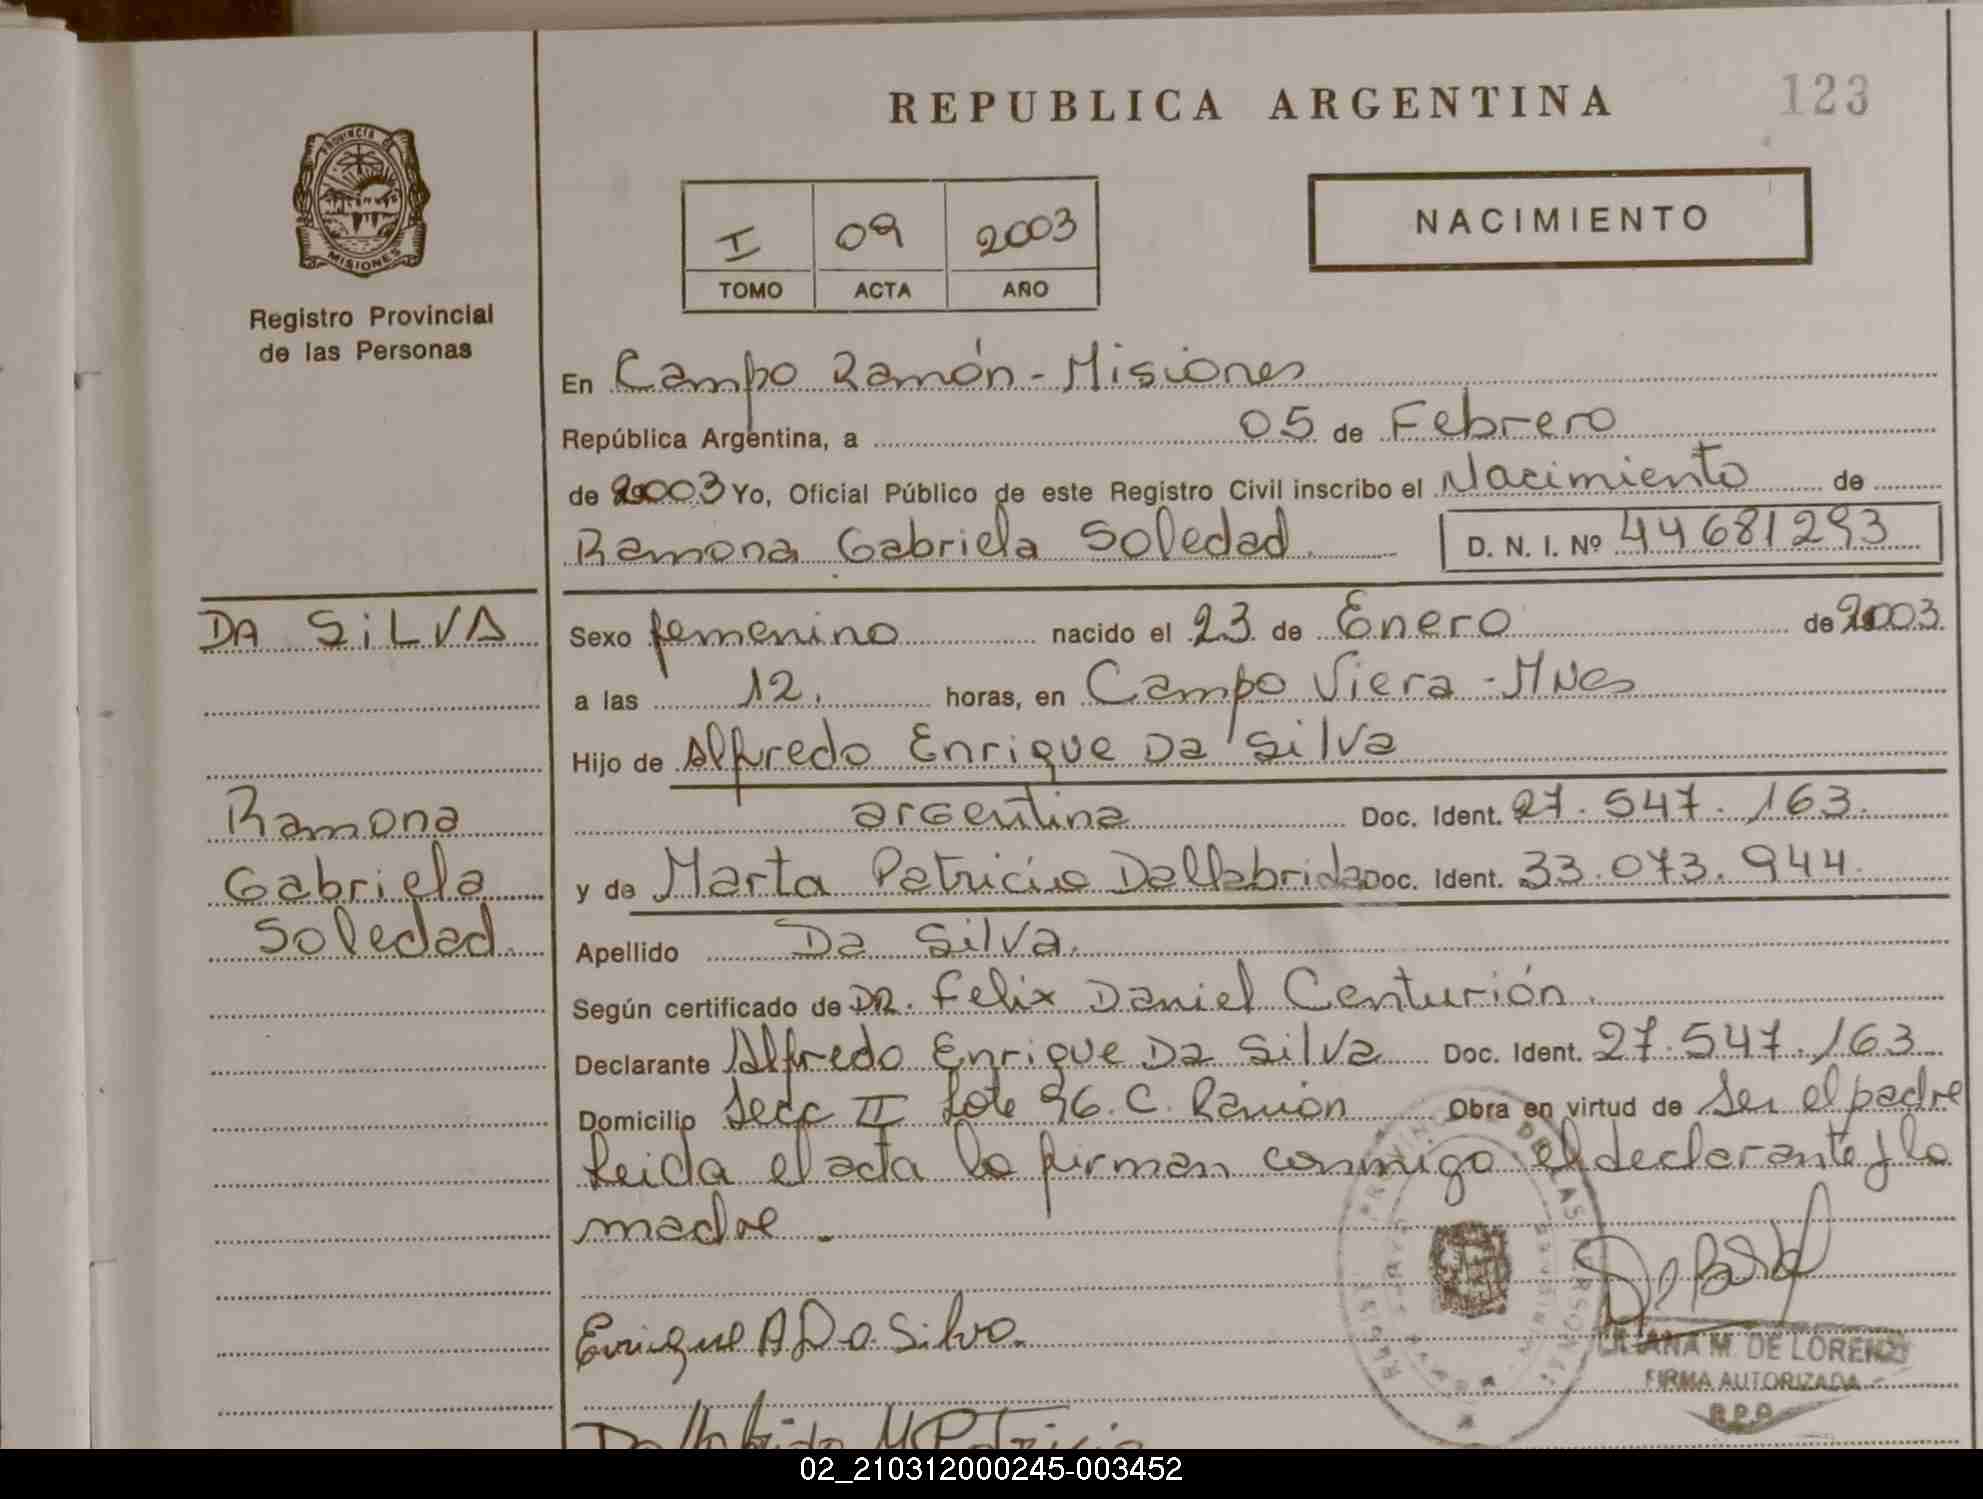 REPUBLICA ARGENTINA
123
PROVINCIA DE
MISIONES
Registro Provincial
de las Personas
I 09 2003
TOMO ACTA AÑO
NACIMIENTO
En Campo Ramón - Misiones
República Argentina, a 05 de Febrero
de 2003 Yo, Oficial Público de este Registro Civil inscribo el Nacimiento de
Ramona Gabriela Soledad D. N. I. Nº 44681293
DA SILVA
Ramona
Gabriela
Soledad.
Sexo femenino nacido el 23 de Enero de 2003
a las 12. horas, en Campo Viera - Mnes
Hijo de Alfredo Enrique Da Silva
argentina Doc. Ident. 27.547.163.
y de Marta Patricia Dallabrida Doc. Ident. 33.073.944.
Apellido Da Silva.
Según certificado de DR. Felix Daniel Centurión.
Declarante Alfredo Enrique Da Silva Doc. Ident. 27.547.163
Domicilio Secc II Lote 96. C. Ramón Obra en virtud de ser el padre
Leida el acta lo firman conmigo el declarante y la
madre.
Enrique A Da Silva.
LILIANA M. DE LORENZI
FIRMA AUTORIZADA
R.P.P.
Dallabrida M Patricia
02_210312000245-003452